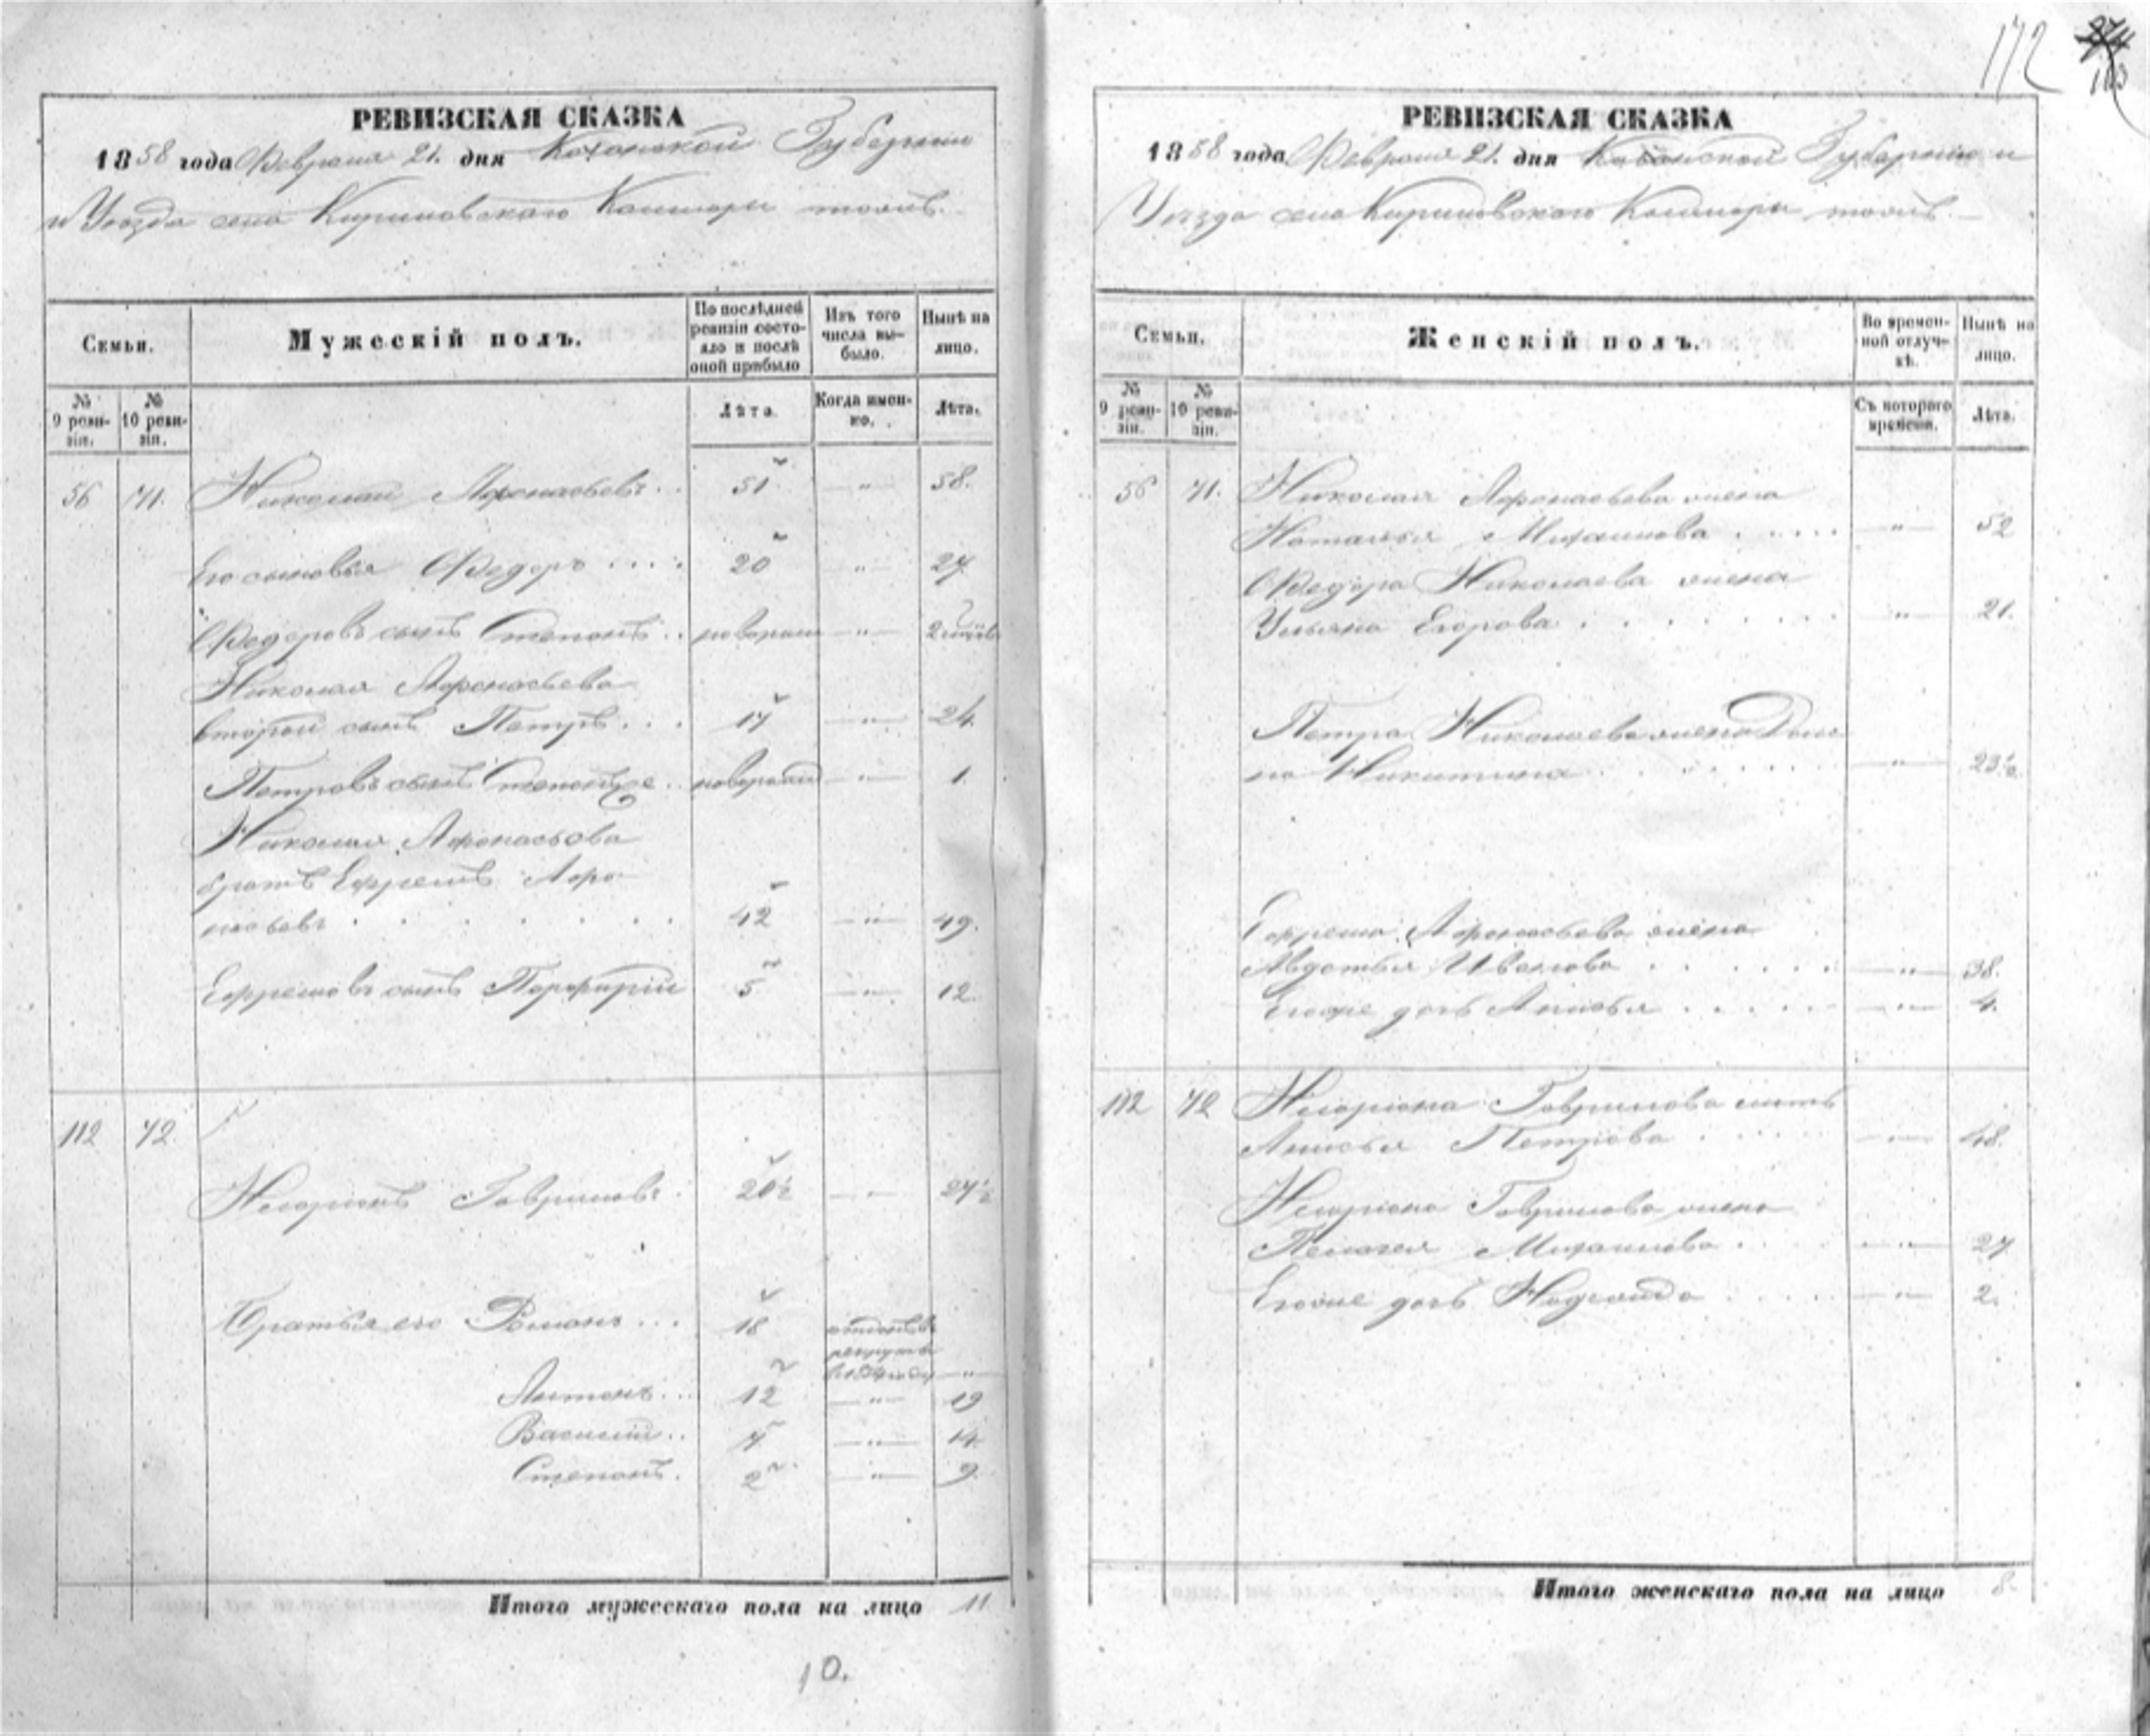 172
РЕВИЗСКАЯ СКАЗКА
1858 года Февраля 21. дня Казанской Губернии
и Уезда села Кириловскаго Кошторы тожъ.
Семьи.
Мужескій полъ.
По послѣдней ревизіи состояло и послѣ оной прибыло
Изъ того числа выбыло.
Нынѣ на лицо.
№ 9 ревизіи.
№ 10 ревизіи.
Лѣта.
Когда именно.
Лѣта.
56 71. Николай Афонасьевъ .. 51 —"— 58.
Его сыновья Федоръ .... 20 " 27.
Федоровъ сынъ Степанъ .. новорожд —"— 2
Николая Афонасьева
второй сынъ Петръ ... 17 —"— 24.
Петровъ сынъ Степанъ же .. новорожд —"— 1.
Николая Афонасьева
братъ Ефремъ Афо
насьевъ . . . . . . 42 —"— 49.
Ефремовъ сынъ Порфирій 5 —"— 12.
112 72.
Иларіонъ Гавриловъ . 20½ — 27½
Братья его Романъ ... 18 отданъ въ
рекруты
в 1854 году —"—
Антонъ ... 12 —"— 19
Василій .. 7 —"— 14
Степанъ . 2 —"— 9.
Итого мужескаго пола на лицо 11
10.
РЕВИЗСКАЯ СКАЗКА
1858 года Февраля 21. дня Казанской Губернии и
Уезда села Кириловскаго Кошторы тожъ.
Семьи.
Женскій полъ.
Во временной отлучкѣ.
Нынѣ на лицо.
№ 9 ревизіи.
№ 10 ревизіи.
Съ котораго времени.
Лѣта.
56 71. Николая Афонасьева жена
Наталья Михаилова . .... —"— 52
Федора Николаева жена
Ульяна Егорова . . . . . . . —"— 21.
Петра Николаева жена Дом
на Никитина . . . . . . —"— 23½
Ефрема Афонасьева жена
Авдотья Иванова . . . . . —"— 38.
Ево же дочь Анисья . . . . . —"— 4.
112 72 Иларіона Гаврилова мать
Анисья Петрова . . . . —"— 48.
Иларіона Гаврилова жена
Пелагея Михаилова . . —"— 27
Ево же дочь Надежда . . . . —"— 2.
Итого женскаго пола на лицо 8.